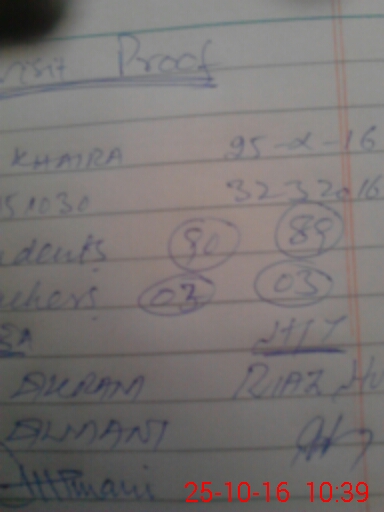 visit Proof
KHAIRA 25-2-16
51030 3232016
dents 90 89
achers 03 03
HTT
AKRAM RIAZ Hu
ALMANI
25-10-16 10:39